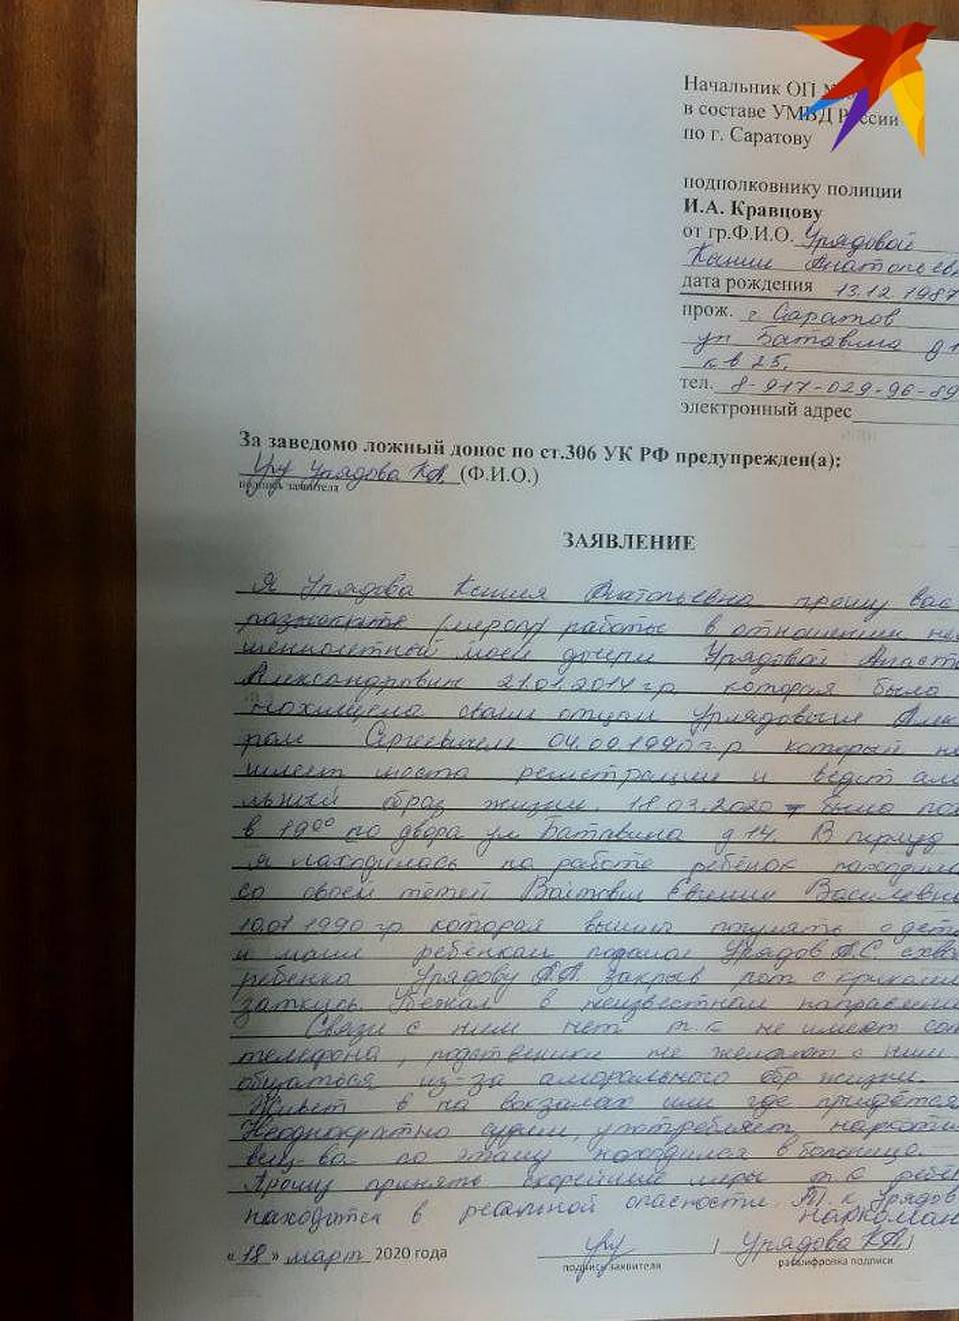 Начальник ОП
в составе УМВД России
по г. Саратову
подполковнику полиции
И.А. Кравцову
от гр.Ф.И.О. Урядовой
Ксении Анатольевн
дата рождения 13.12.1987
прож. г Саратов
ул Батавина д 1
кв 25.
тел. 8-917-029-96-89
электронный адрес
За заведомо ложный донос по ст.306 УК РФ предупрежден(а):
Урядова К.А. (Ф.И.О.)
подпись заявителя
ЗАЯВЛЕНИЕ
Я Урядова Ксения Анатольевна прошу вас
работы в отношении
моей дочери Урядовой Анаст
Александровны 21.01.2014 г.р. которая была
похищена своим отцом Урядовым Алек
ром Сергеевичем 04.09.1990 г.р. который не
имеет места регистрации и ведит амо
льный образ жизни. 18.03.2020 было
в 19⁰⁰ во двора ул Батавина д 14. В период
я находилась на работе ребёнок находил
со своей тётей Евгении Васильевн
10.01 1990 г.р. которая вышла погулять с дет
и моим ребёнком Урядов А.С. схва
ребенка Урядову А.А. закрыв рот с криками
заткнись. Убежал в неизвестном направлении
Связи с ним нет т.к не имеет сот
телефона, родственики не желают с ним
общаться из-за аморального обр жизни.
Живет в на вокзалах или где придётся
Неоднократно судим, употребляет наркоти
вещ-ва по этому находился в больнице.
Прошу принять скорейшие меры т.к ребё
находится в реальной опасности. Т.к Урядов
наркоман
« 18 » март 2020 года Урядова К.А.
подпись заявителя расшифровка подписи